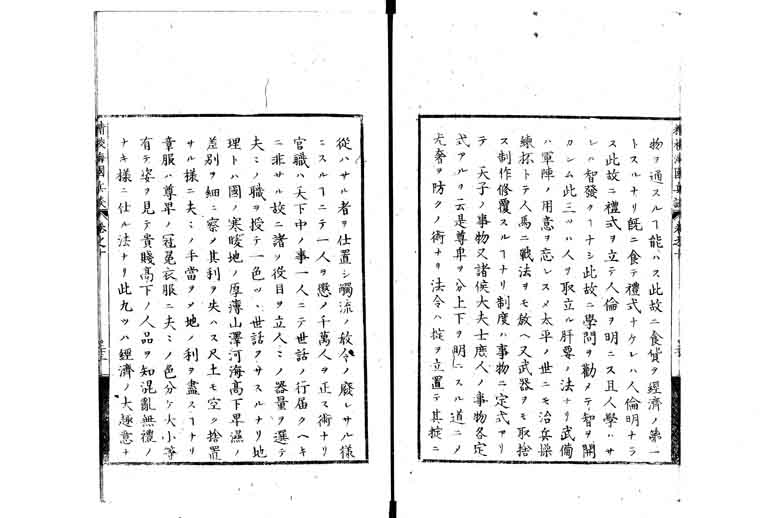 物ヲ通スルヿ能ハス此故ニ食貨ヲ經濟ノ第一
トスルナリ既ニ食テ禮式ナケレハ人倫明ナラ
ス此故ニ禮式ヲ立テ人倫ヲ明ニス且人學ハサ
レハ智發セヿナシ此故ニ學問ヲ勸メテ智ヲ開
カシム此三ツハ人ヲ取立ル肝要ノ法ナリ武備
ハ軍陣ノ用意ヲ忘レスメ太平ノ世ニモ治兵操
練抔トテ人馬ニ戰法ヲモ敎ヘ又武器ヲモ取捨
ス制作修覆スルヿナリ制度ハ事物ニ定式アリ
テ 天子ノ事物又諸侯大夫士庶人ノ事物各定
式アルヲ云是尊卑ヲ分上下ヲ明ニスル道ニノ
尤奢ヲ防クノ術ナリ法令ハ掟ヲ立置テ其掟ニ
精校海國兵談 卷之十
從ハサル者ヲ仕置シ觸流ノ放令ノ廢レサル樣
ニスルヿニテ一人ヲ懲ノ千萬人ヲ正ス術ナリ
官職ハ天下中ノ事一人ニテ世話ノ行届クヘキ
ニ非サル故ニ諸ノ役目ヲ立人ミノ器量ヲ選テ
夫ミノ職ヲ授テ一色ツヽ世話ヲサスルナリ地
理トハ國ノ寒暖地ノ厚薄山澤河海高下旱濕ノ
差別ヲ細ニ察ノ其利ヲ失ハス尺土モ空ク捨置
サル樣ニ夫ミノ手當ヲメ地ノ利ヲ盡スヿナリ
章服ハ尊卑ノ冠冕衣服ニ夫ミノ色分ケ大小等
有テ姿ヲ見テ貴賤高下ノ人品ヲ知混亂無禮ノ
ナキ樣ニ仕ル法ナリ此九ツハ經濟ノ大趣意ナ
精校海國兵談 卷之十